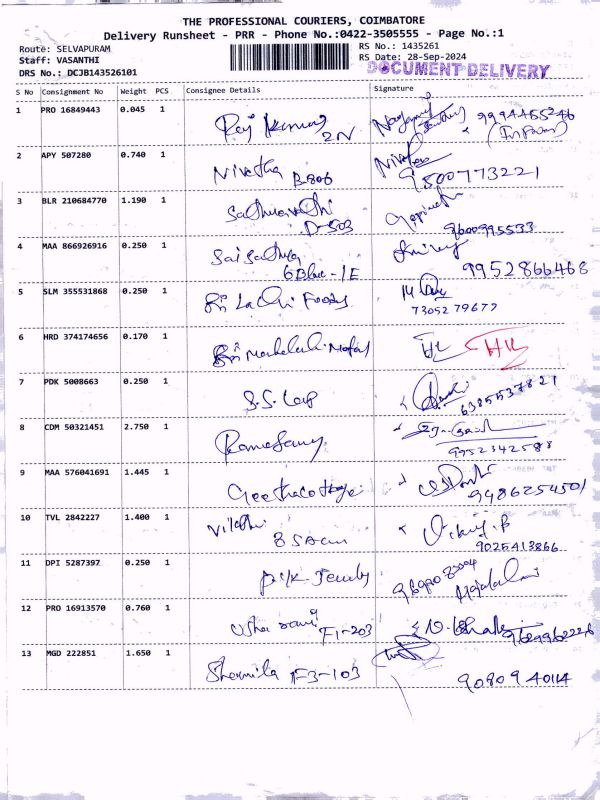 THE PROFESSIONAL COURIERS, COIMBATORE
Delivery Runsheet - PRR - Phone No.:0422-3505555 - Page No.:1
Route: SELVAPURAM
Staff: VASANTHI
DRS No.: DCJB143526101
RS No.: 1435261
RS Date: 28-Sep-2024
DOCUMENT DELIVERY
S No Consignment No Weight PCS Consignee Details Signature
1 PRO 16849443 0.045 1 Raj Kumar 2N
2 APY 507280 0.740 1 Nivetha B-806 9500773221
3 BLR 210684770 1.190 1 D-503 9600995533
4 MAA 866926916 0.250 1 Sai Sathya 6 Blue-1E 9952866468
5 SLM 355531868 0.250 1 Sri Lachi Foods 7305279677
6 HRD 374174656 0.170 1 Sri Mahalakshmi
7 PDK 5008663 0.250 1 S.S. 6385537821
8 CDM 50321451 2.750 1 Ramasamy 9952342588
9 MAA 576041691 1.445 1 Geetha cottage 9486254501
10 TVL 2842227 1.400 1 9025413866
11 DPI 5287397 0.250 1
12 PRO 16913570 0.760 1 Usha rani F1-203
13 MGD 222851 1.650 1 Shermila F3-103 9080940114